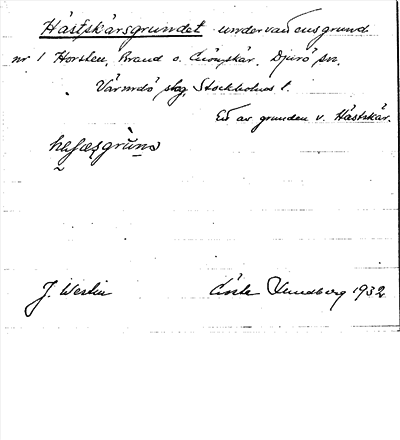 Hästskärsgrundet undervattensgrund
nr 1 Horsten, Brand o. Lönnskär, Djurö sn.
Värmdö skg, Stockholms l.
Ett av grunden v. Hästskär.
J. Westin
Lundberg 1932